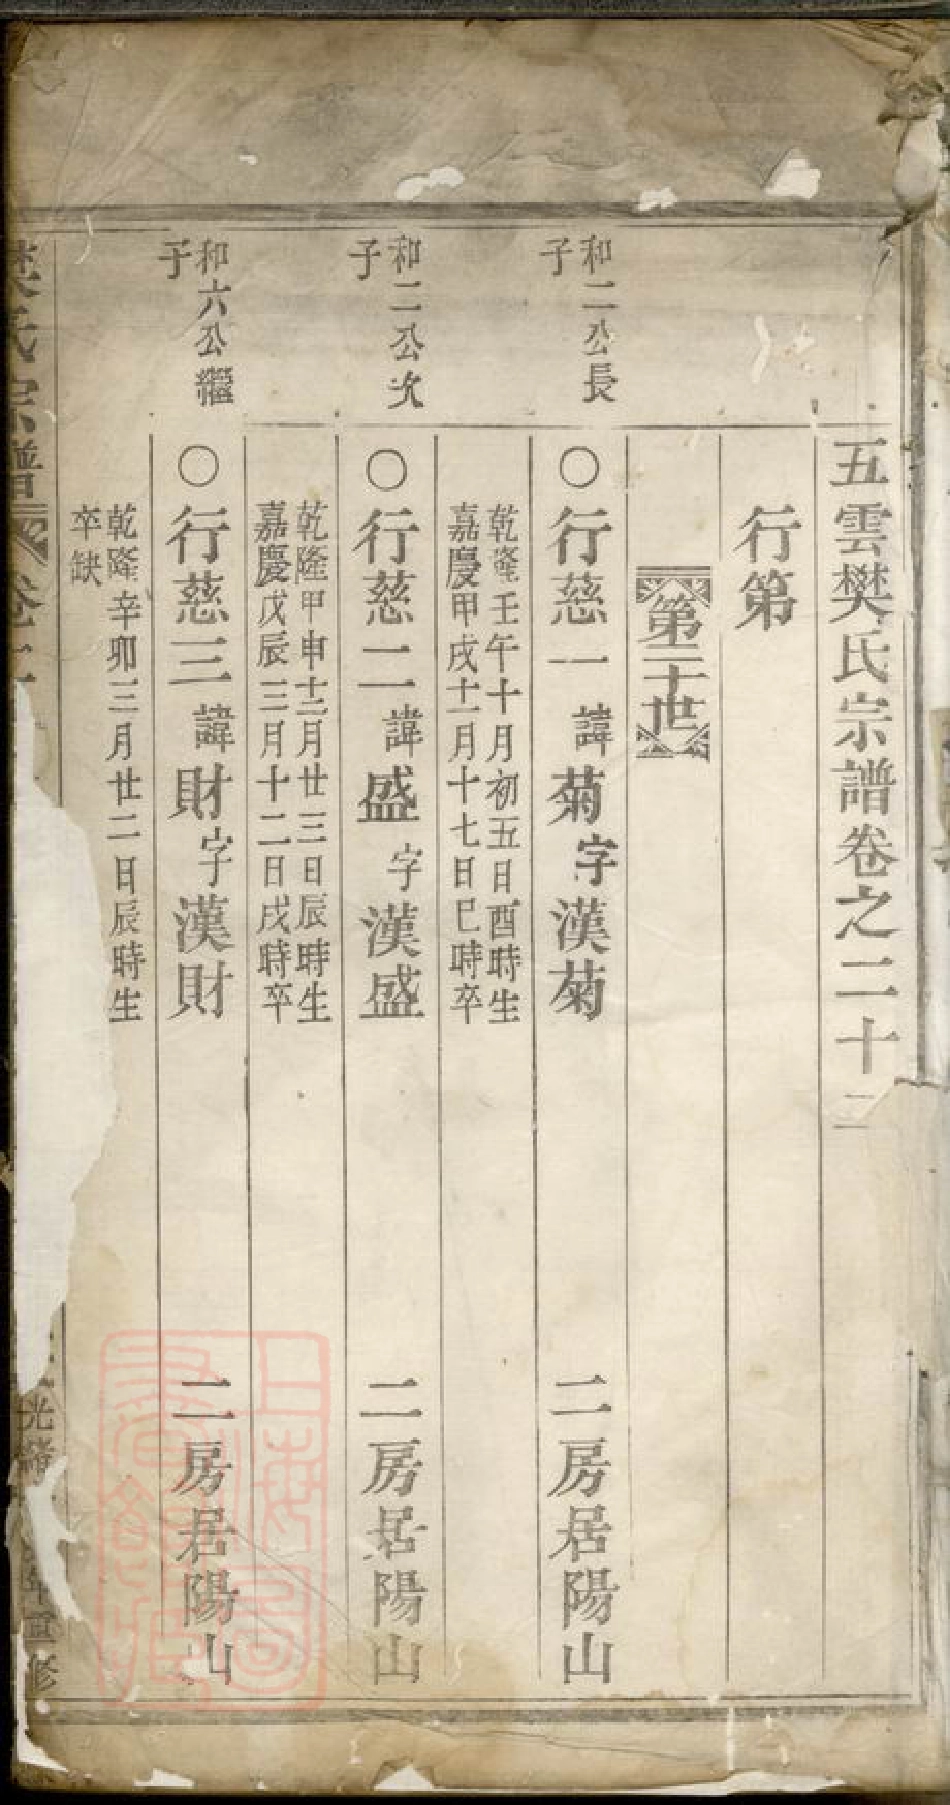 五雲樊氏宗譜卷之二十二
行第
第三十世
和二公長子
○行慈一諱菊字漢菊 二房居陽山
乾隆壬午十月初五日酉時生
嘉慶甲戌十一月十七日巳時卒
和二公次子
○行慈二諱盛字漢盛 二房居陽山
乾隆甲申十二月廿三日辰時生
嘉慶戊辰三月十二日戌時卒
和六公繼子
○行慈三諱財字漢財 二房居陽山
乾隆辛卯三月廿二日辰時生
卒缺
樊氏宗譜 卷二 光緒 年重修